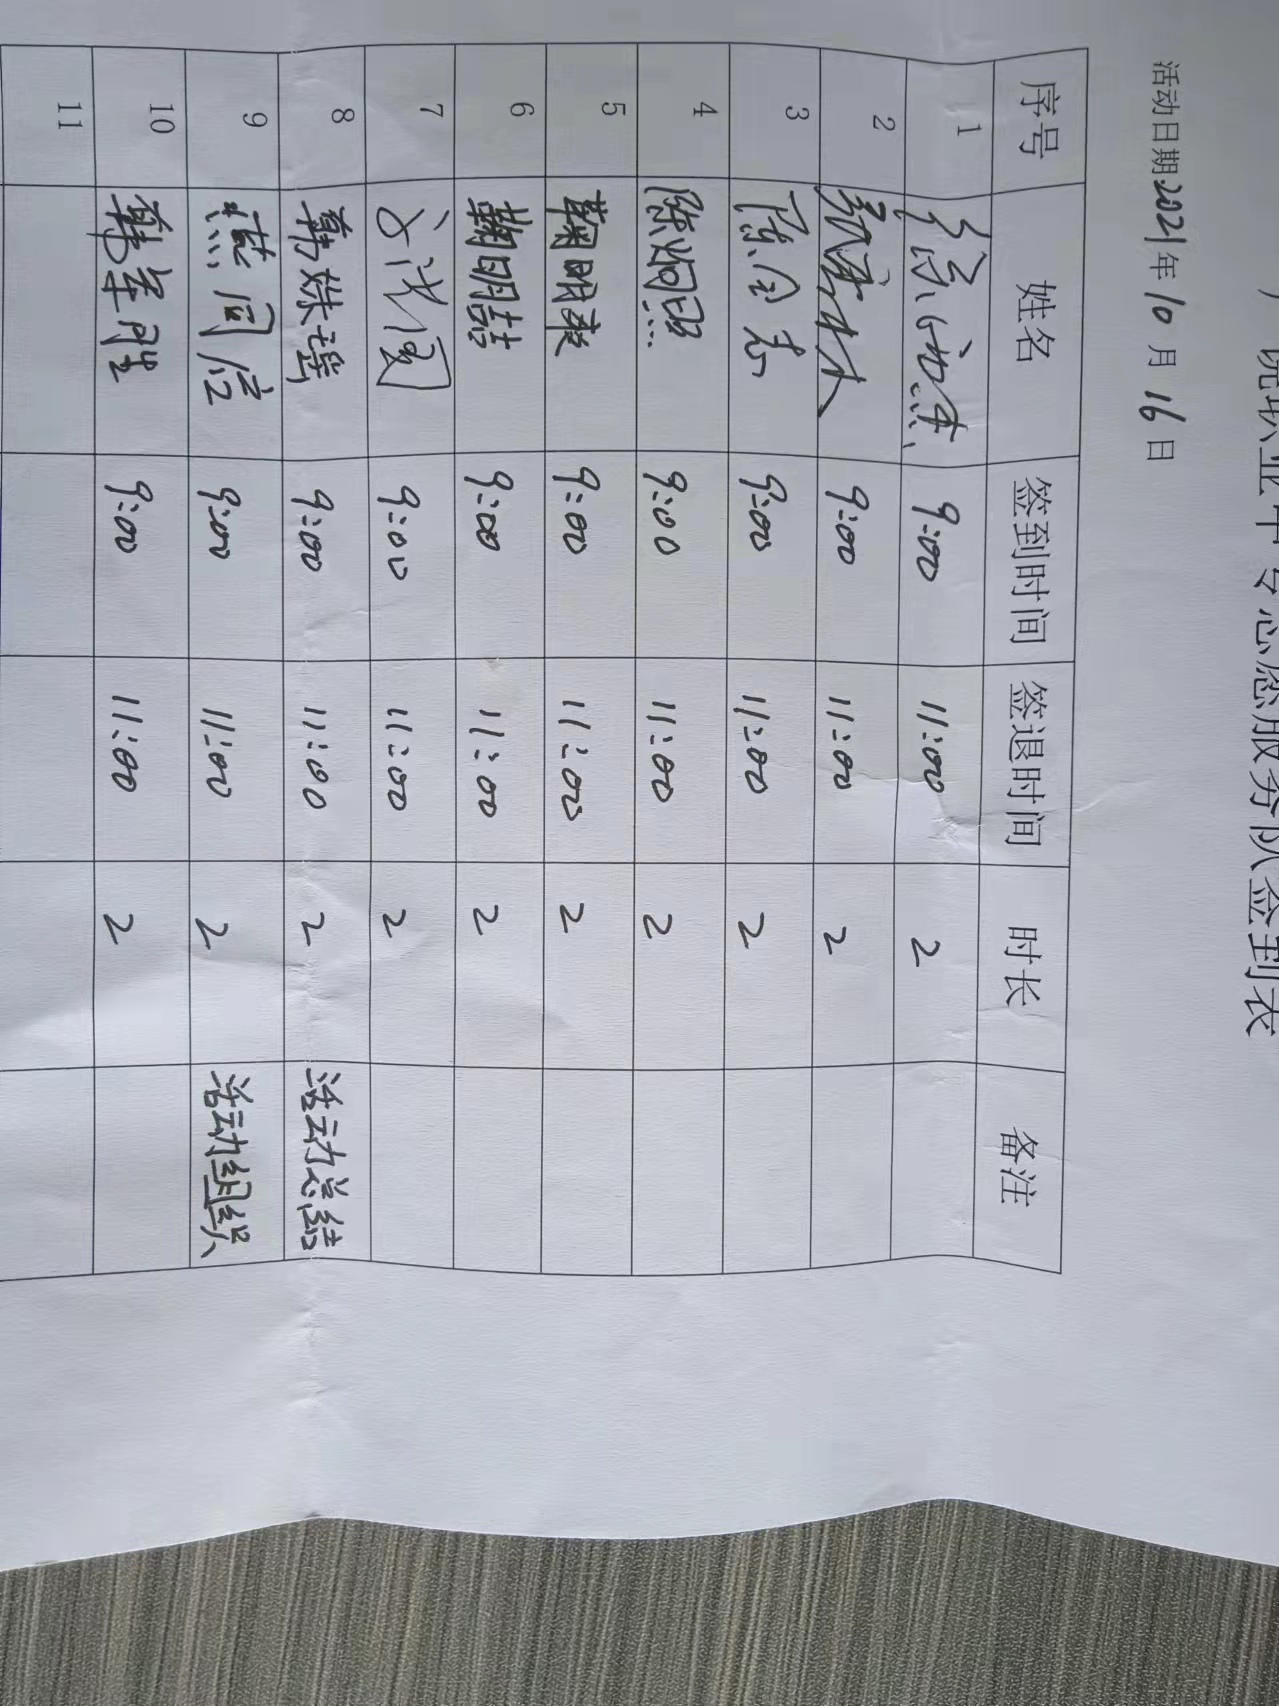 职业中专志愿服务队签到表
活动日期:2021年10月16日
序号 姓名 签到时间 签退时间 时长 备注
1 9:00 11:00 2
2 9:00 11:00 2
3 陈全志 9:00 11:00 2
4 陈炯照 9:00 11:00 2
5 鞠明爽 9:00 11:00 2
6 鞠明喆 9:00 11:00 2
7 9:00 11:00 2
8 韩姝瑶 9:00 11:00 2 活动总结
9 燕同应 9:00 11:00 2 活动组织
10 9:00 11:00 2
11